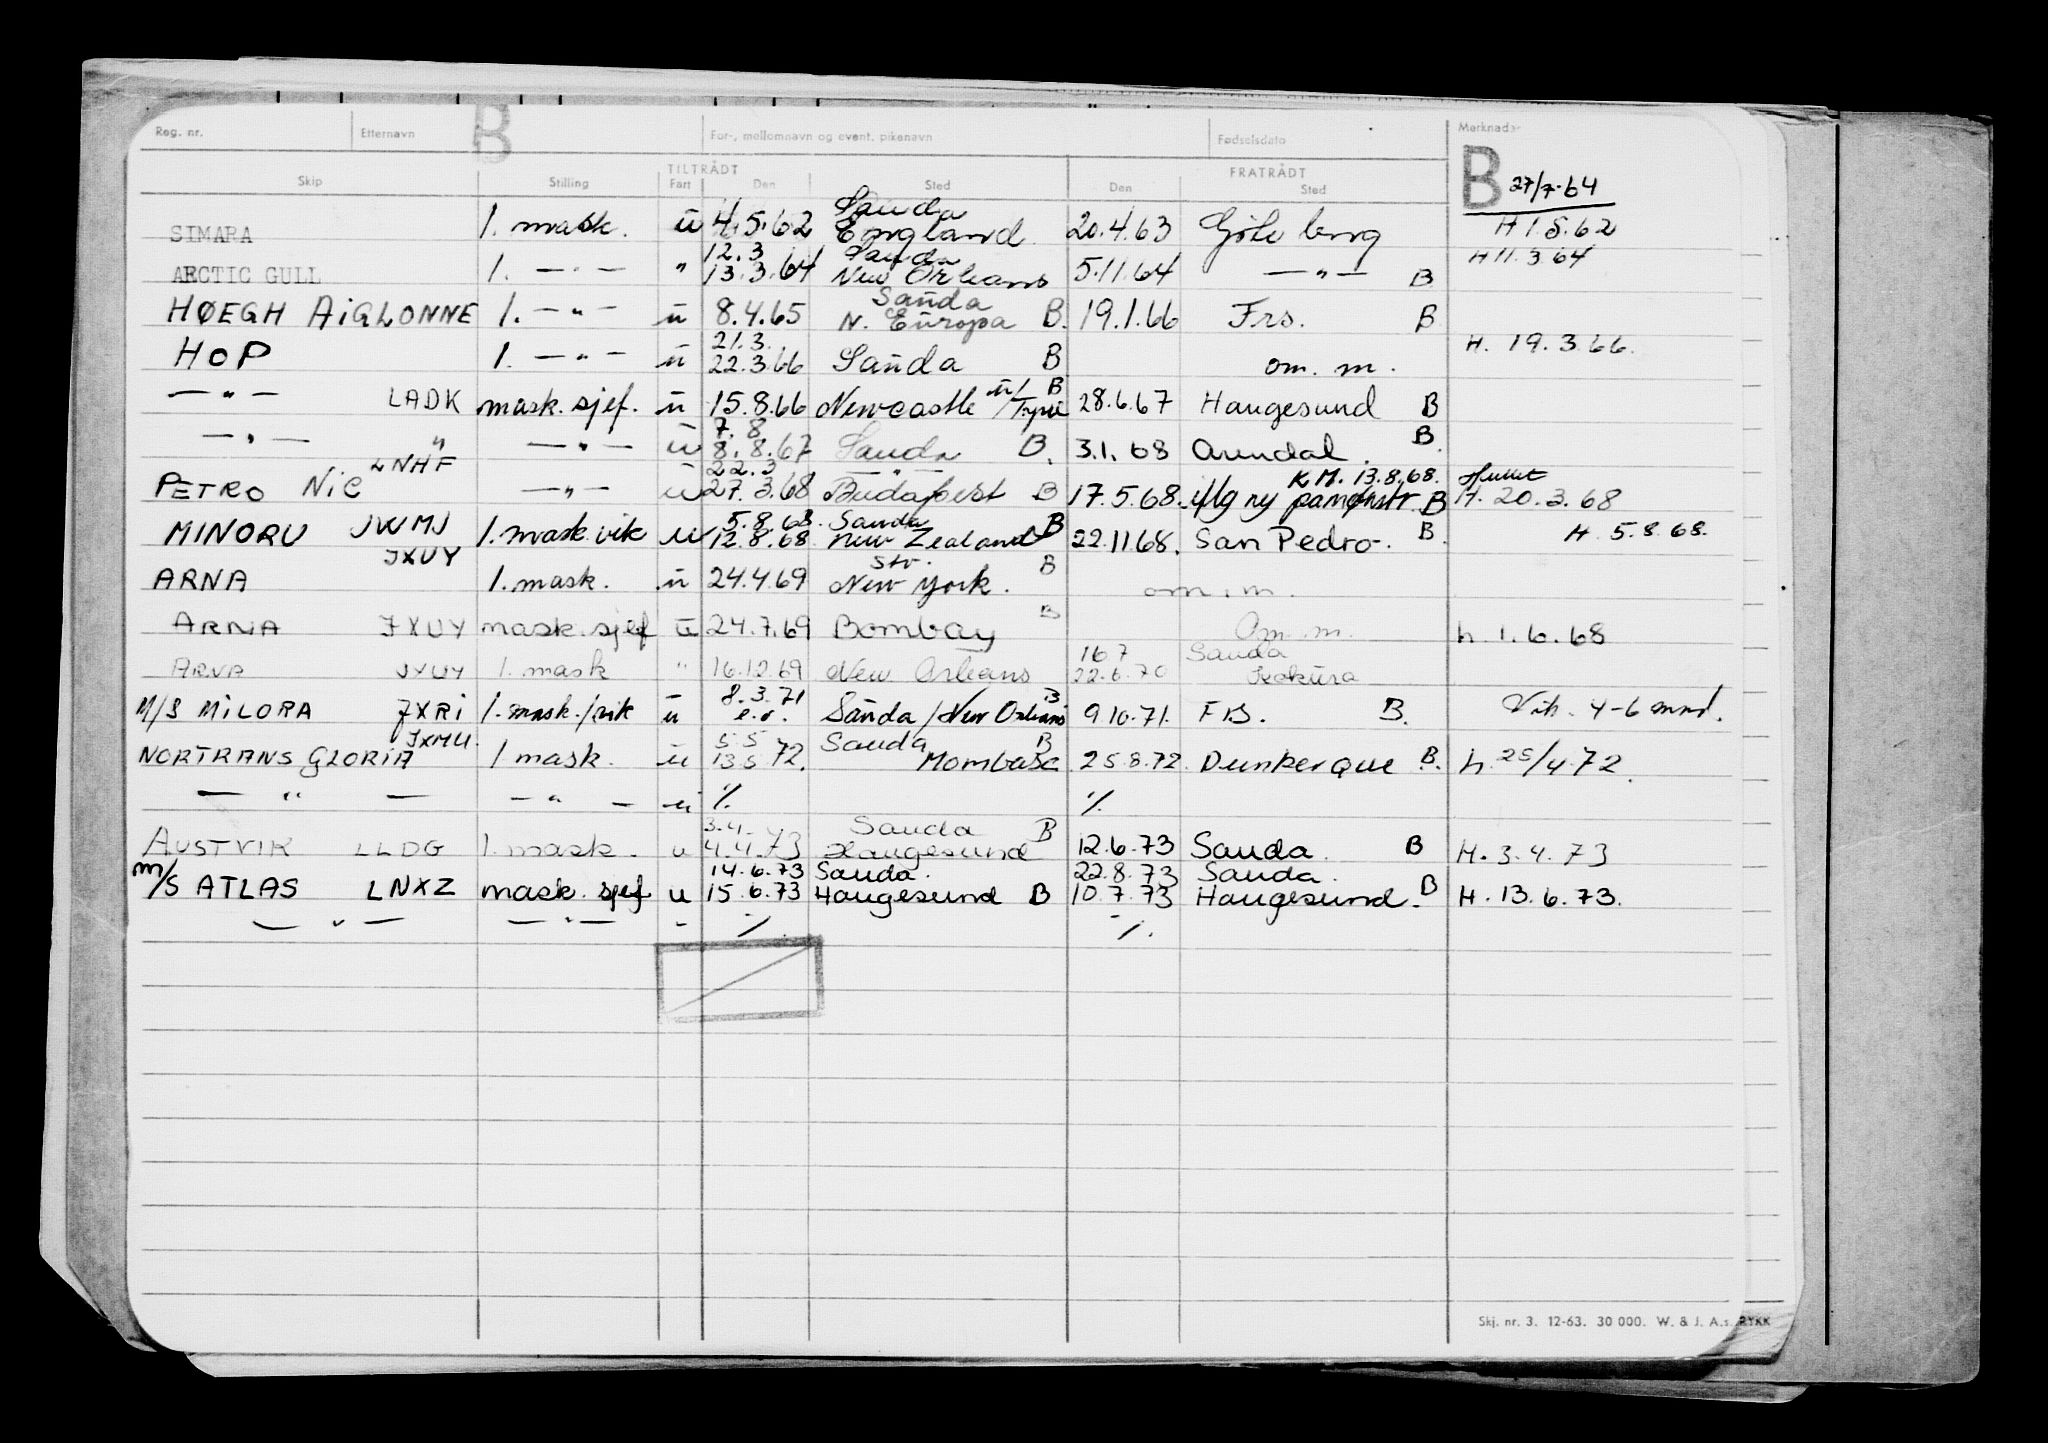 Reg. nr. Etternavn B For-, mellomnavn og event. pikenavn Fødselsdato Merknader
TILTRÅDT FRATRÅDT
Skip Stilling Fart Den Sted Den Sted B 27/7-64
Sauda
SIMARA 1. mask. u 4.5.62 England 20.4.63 Göteborg H 1.5.62
12.3 Sauda H 11.3.64
ARCTIC GULL 1. — " — " 13.3.64 New Orleans 5.11.64 — " — B
Sauda
HØEGH AIGLONNE 1. — " — u 8.4.65 N. Europa B. 19.1.66 Frs. B
21.3. H. 19.3.66.
HOP 1. — " — u 22.3.66 Sauda B om. m.
— " — LADK mask. sjef. u 15.8.66 Newcastle u/Tyne B 28.6.67 Haugesund B
7.8
— " — " — " — u 8.8.67 Sauda B. 3.1.68 Arendal. B
LNHF 22.3 — " — K.M. 13.8.68. Hyllet
PETRO NIC — " — u 27.3.68 Budapest B 17.5.68. iflg ny pamønstr. B H. 20.3.68
5.8.68. Sauda
MINORU JWMJ 1. mask. vik u 12.8.68 New Zealand B 22.11.68. San Pedro. B. H. 5.8.68.
JXUY Stv. B
ARNA 1. mask. u 24.4.69 New York. om. m.
ARNA JXUY mask. sjef u 24.7.69 Bombay B Om. m. h. 1.6.68
16.7 Sauda
ARNA JXUY 1. mask " 16.12.69 New Orleans 22.6.70 Kokura
8.3.71
M/S MILORA JXRI 1. mask./vik u e.o. Sauda/New Orleans B 9.10.71. FBS. B. Vik. 4-6 mnd.
JXMU. 5.5 Sauda B
NORTRANS GLORIA 1 mask. u 13.5.72. Mombasa 25.8.72. Dunkerque B. h. 25/4.72.
— " — — " — u %. %.
3.4. Sauda B
AUSTVIK LLDG 1. mask. u 4.4.73 Haugesund 12.6.73 Sauda. B H. 3.4.73
14.6.73 Sauda. 22.8.73 Sauda.
M/S ATLAS LNXZ mask. sjef u 15.6.73 Haugesund B 10.7.73 Haugesund. B H. 13.6.73.
— " — — " — - %. %.
Skj. nr. 3. 12-63. 30 000. W. & J. A.s. RYKK